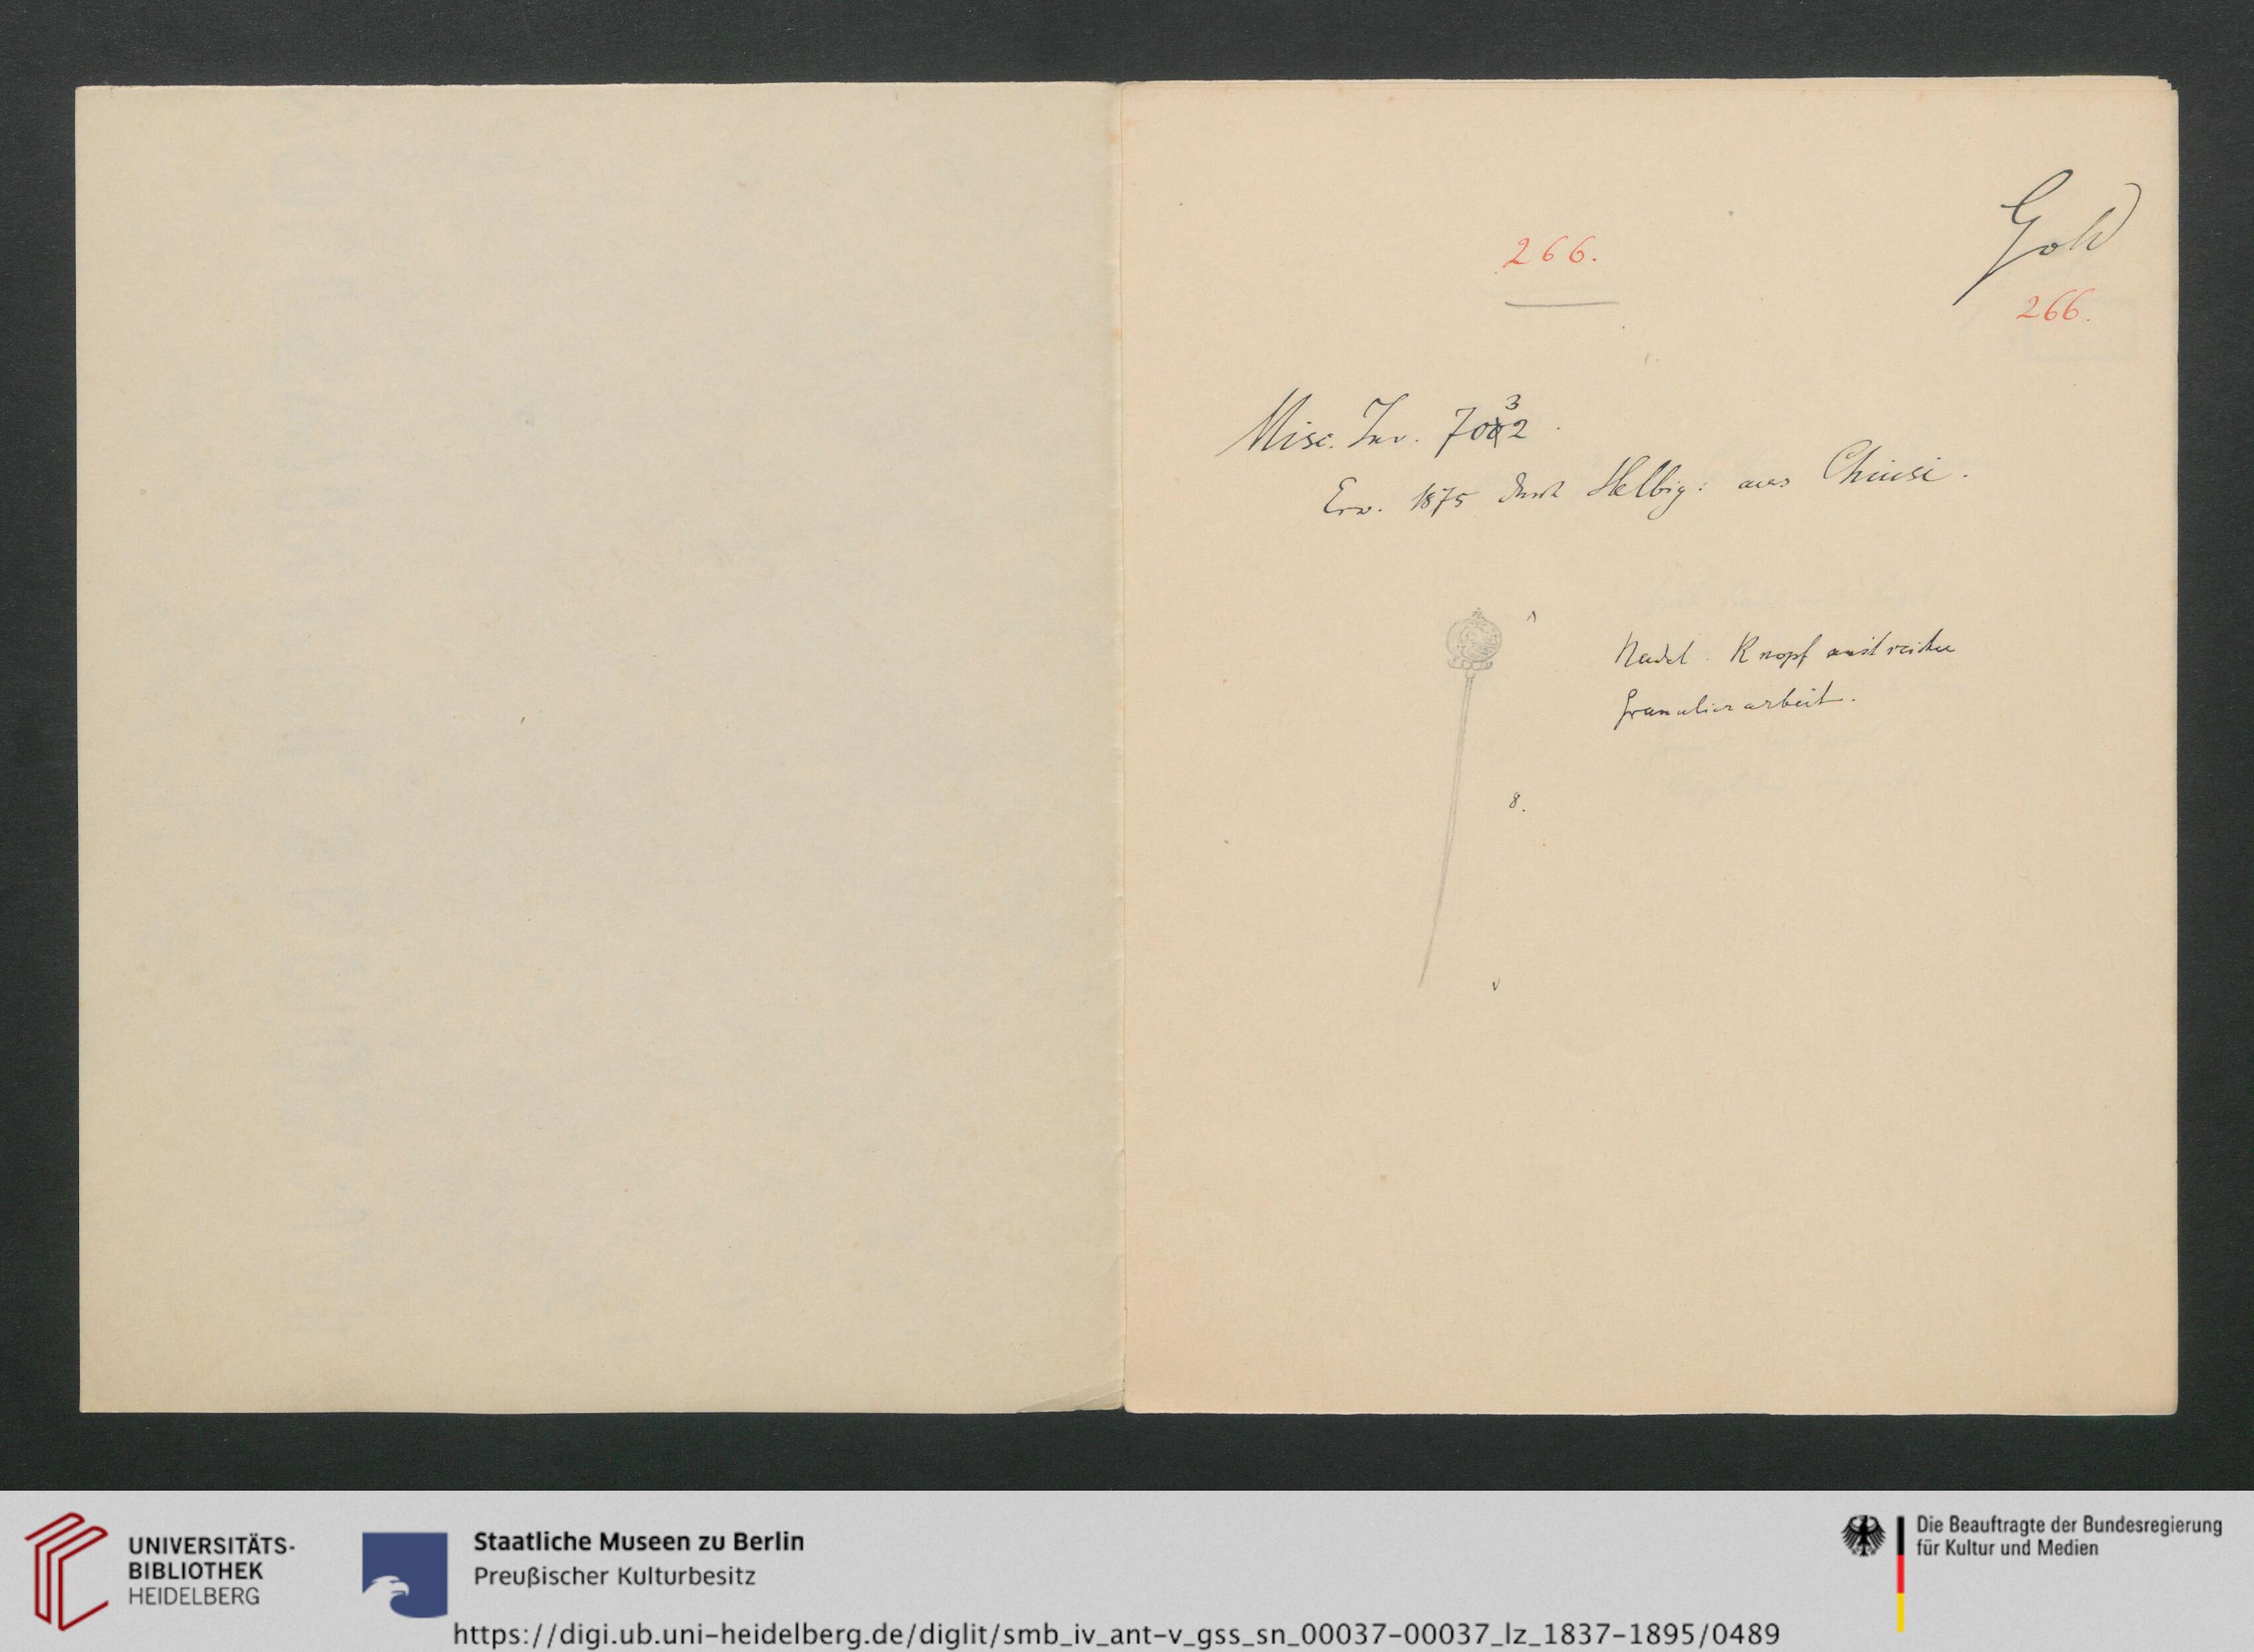 Gold
266.
266.
Misc. Inv. 7032
Erw. 1875 durch Helbig: aus Chiusi.
Nadel. Knopf mit reicher
Granulierarbeit.
8.
UNIVERSITÄTS-
BIBLIOTHEK
HEIDELBERG
Staatliche Museen zu Berlin
Preußischer Kulturbesitz
Die Beauftragte der Bundesregierung
für Kultur und Medien
https://digi.ub.uni-heidelberg.de/diglit/smb_iv_ant-v_gss_sn_00037-00037_lz_1837-1895/0489